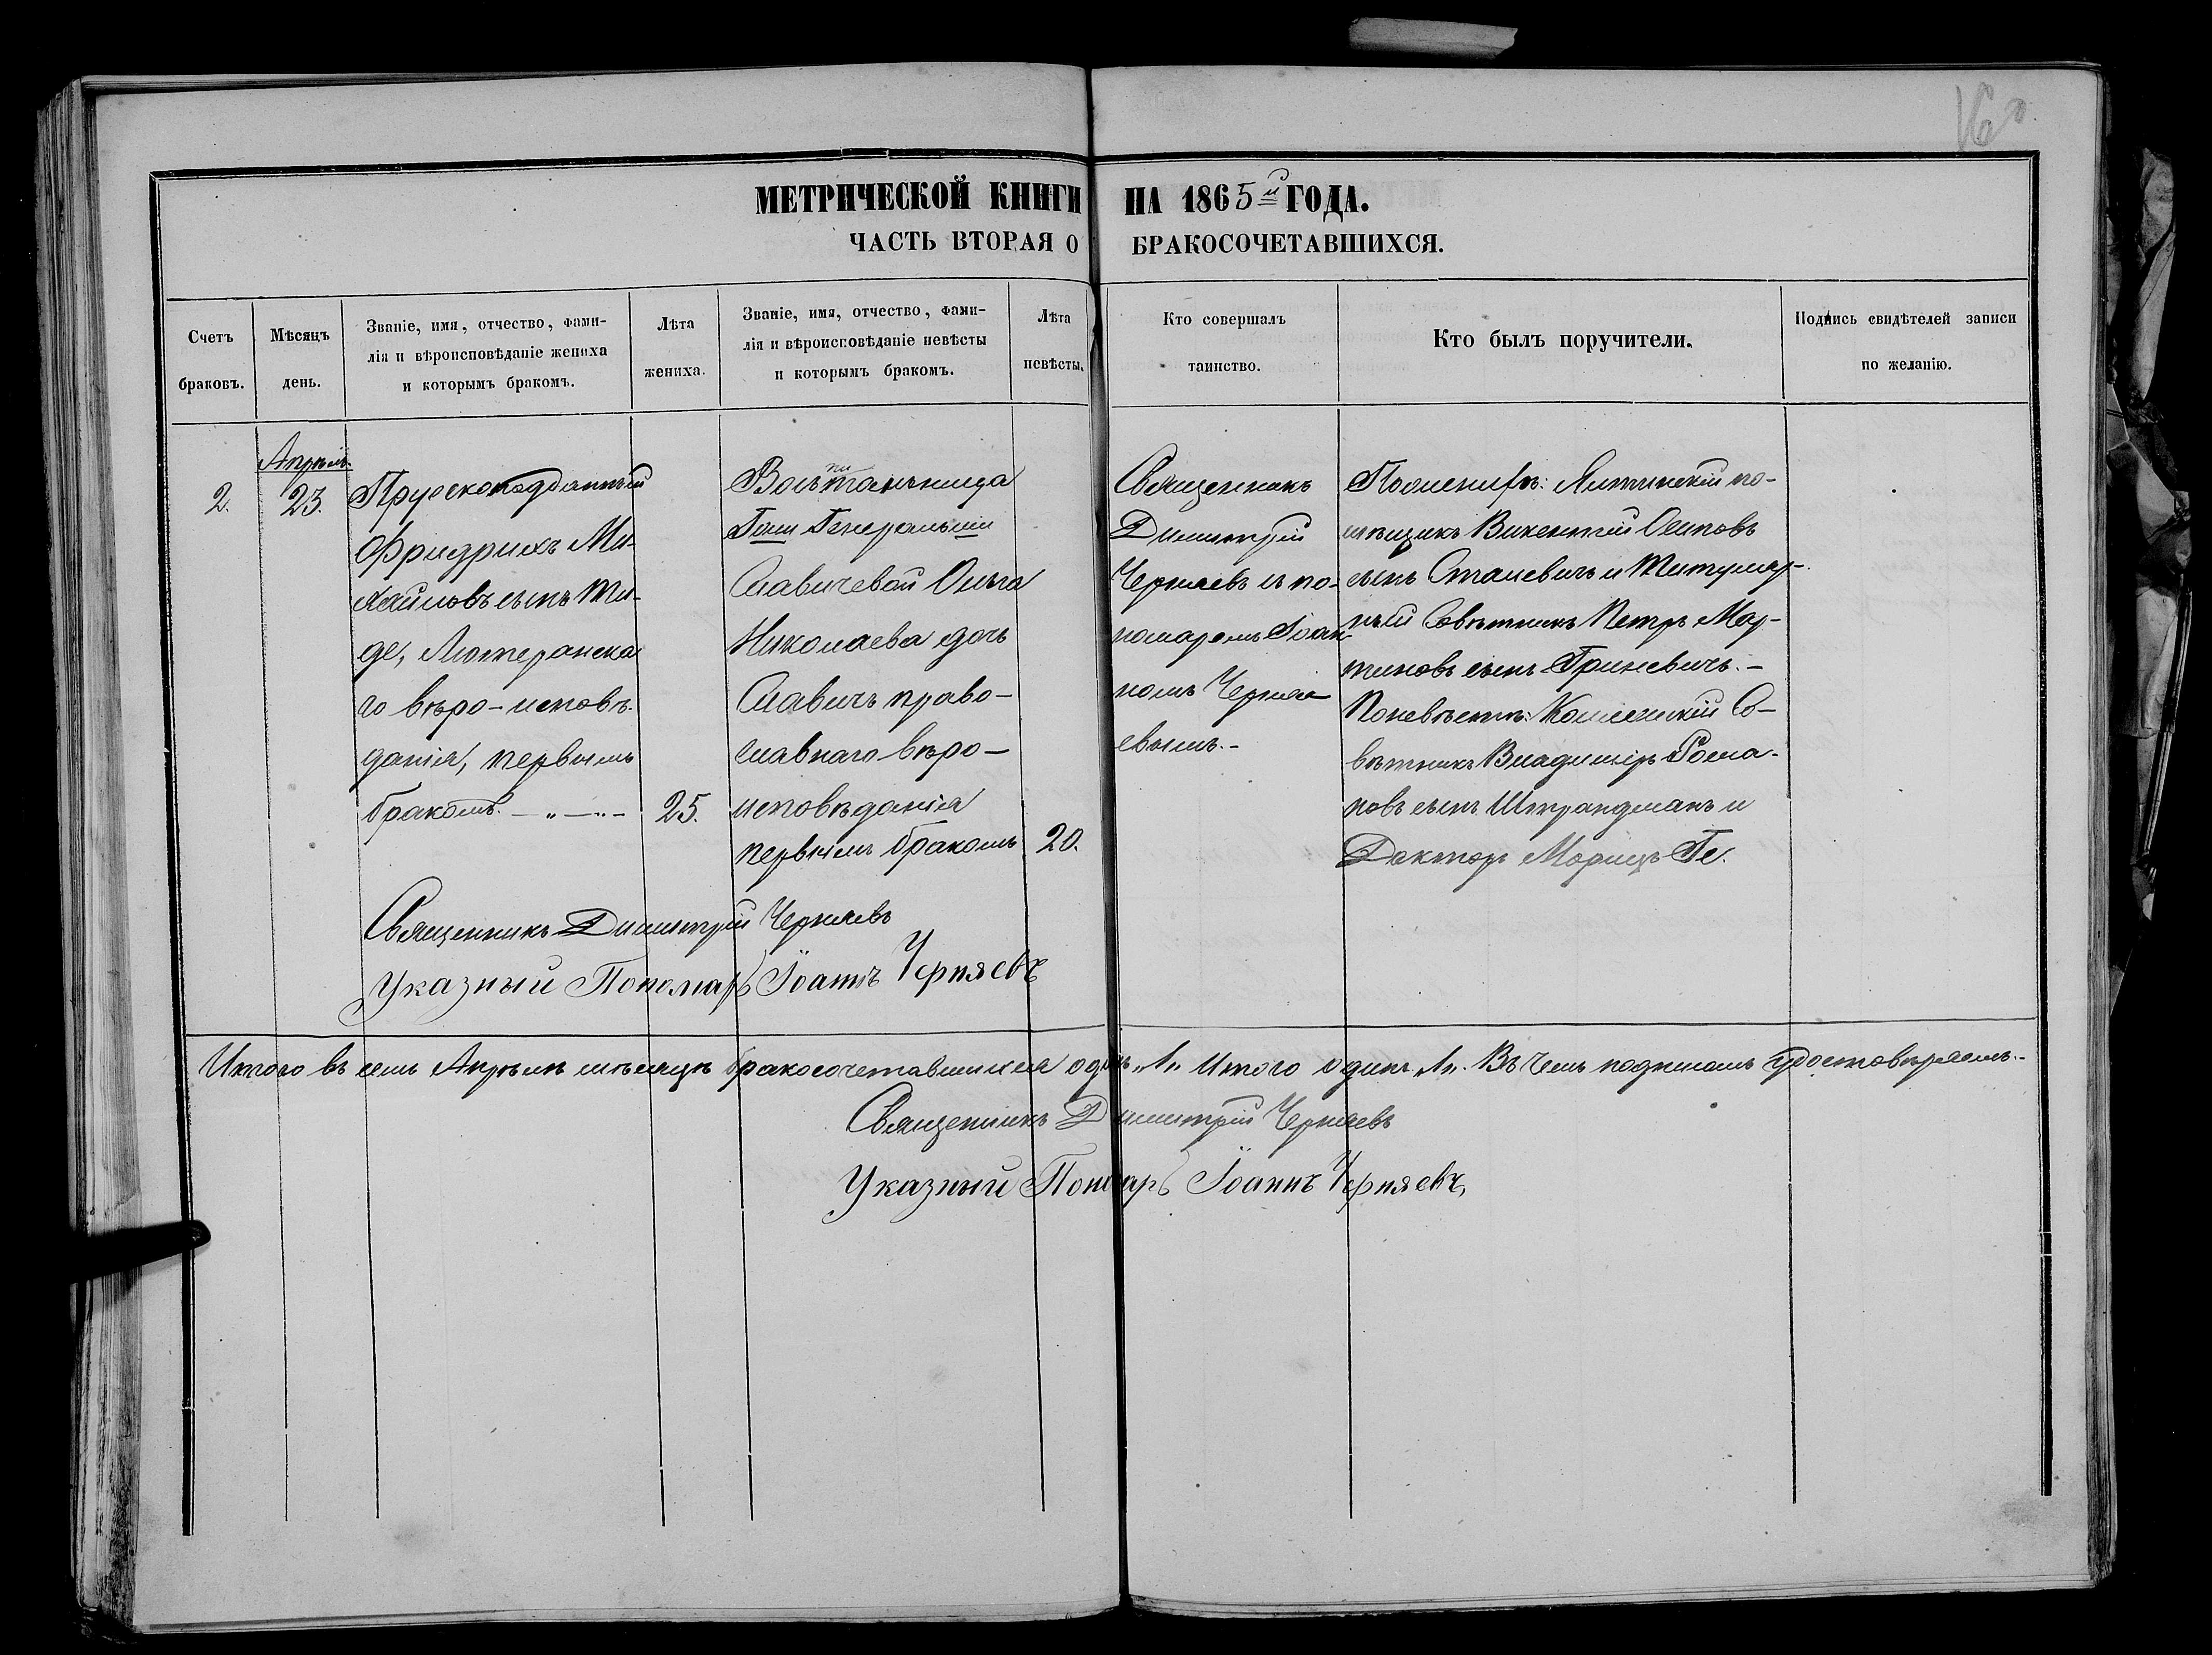 160
МЕТРИЧЕСКОЙ КНИГИ НА 1865й ГОДА.
ЧАСТЬ ВТОРАЯ О БРАКОСОЧЕТАВШИХСЯ.
Счетъ
браковъ.
Мѣсяцъ
день.
Званіе, имя, отчество, фами-
лія и вѣроисповѣданіе жениха
и которымъ бракомъ.
Лѣта
жениха.
Званіе, имя, отчество, фами-
лія и вѣроисповѣданіе невѣсты
и которымъ бракомъ.
Лѣта
невѣсты.
Кто совершалъ
таинство.
Кто былъ поручители.
Подпись свидѣтелей записи
по желанію.
2.
Апрѣль
23.
Прускоподданный
Фридрихъ Ми-
хайловъ сынъ Ти-
де, Лютеранска
го вѣро-исповѣ-
данія, первымъ
бракомъ.
25.
Воспитанница
Генеральши
Славичевой Ольга
Николаева дочь
Славичъ право-
славнаго вѣро-
исповѣданія
первымъ бракомъ
20.
Священникъ
Димитрій
Черняевъ съ по-
номаремъ Іоан-
номъ Черня-
евымъ.-
Поженихѣ: Ялтинскій по-
мѣщикъ Викентій Осиповъ
сынъ Станевичъ и Титуляр-
ный Совѣтникъ Петръ Мар-
тиновъ сынъ Гриневичъ.-
Поневѣстѣ: Коллежскій Со-
вѣтникъ Владиміръ Рома-
новъ сынъ Штрандманъ и
Докторъ Морицъ Ге.
Священникъ Димитрій Черняевъ
Указный Пономарь Іоаннъ Черняевъ
Итого въ семъ Апрѣлѣ мѣсяцѣ бракосочетавшихся одинъ „1„ Итого одинъ „1„. Въ чемъ подписомъ удостовѣряемъ.-
Священникъ Димитрій Черняевъ
Указный Пономарь Іоаннъ Черняевъ,